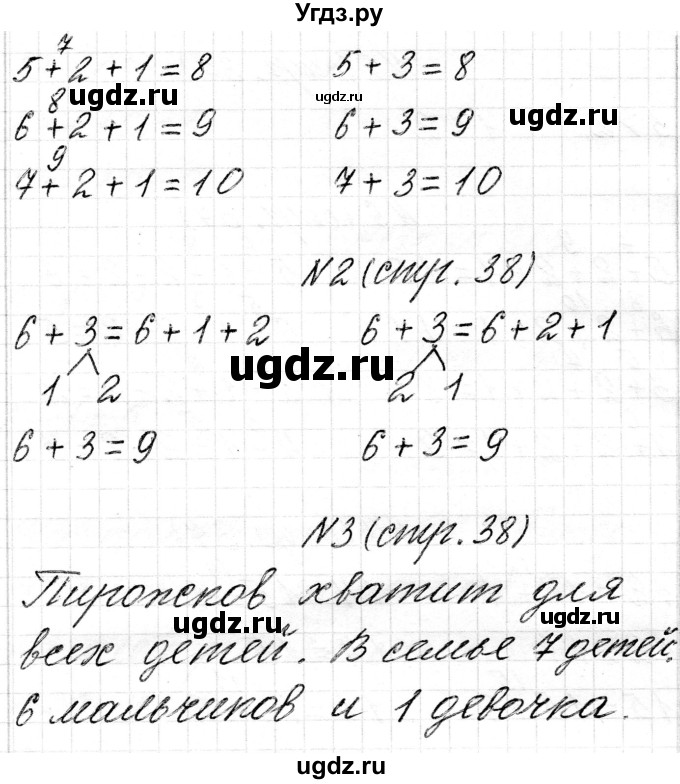 Угдз.ру
7
5 + 2 + 1 = 8 5 + 3 = 8
ugdz.ru ugdz.ru
8
6 + 2 + 1 = 9 6 + 3 = 9 ugdz.ru
9
7 + 2 + 1 = 10 7 + 3 = 10
N2 (стр. 38)
6 + 3 = 6 + 1 + 2 6 + 3 = 6 + 2 + 1
ugdz.ru ugdz.ru
1 2 2 1
6 + 3 = 9 6 + 3 = 9
N3 (стр. 38)
Пирожков хватит для
ugdz.ru ugdz.ru
всех детей. В семье 7 детей.
6 мальчиков и 1 девочка.